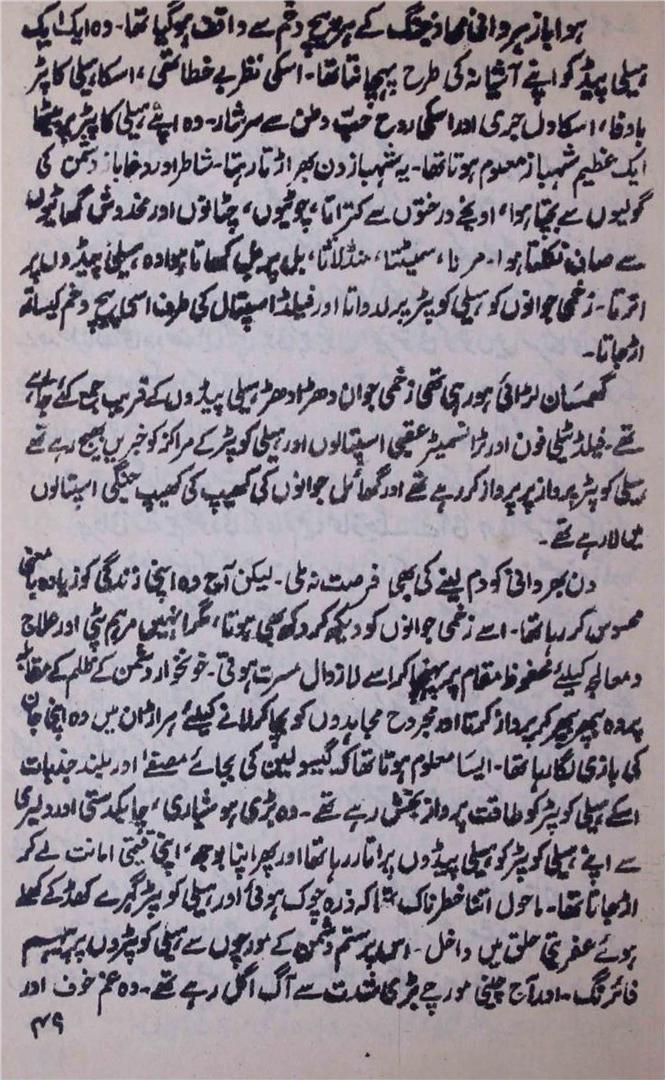 ہوا باز ہروانی محاذ جنگ کے ہر پیچ و خم سے واقف ہو گیا تھا۔ وہ ایک ایک
ہیلی پیڈ کو اپنے آشیانہ کی طرح پہچانتا تھا۔ اسکی نظر بے خطا تھی، اسکا ہیلی کاپٹر
باوفا، اسکا دل جری اور اسکی روح حبِ وطن سے سرشار۔ وہ اپنے ہیلی کاپٹر پر بیٹھا
ایک عظیم شہباز معلوم ہوتا تھا۔ یہ شہباز دن بھر اڑتا رہتا۔ شاطر اور دغا باز دشمن کی
گولیوں سے بچتا ہوا، اونچے درختوں سے کتراتا، چوٹیوں، چٹانوں اور مخدوش گھاٹیوں
سے صاف نکلتا ہوا۔ مرنا، سمیٹتا، منڈلاتا، بل پر بل کھاتا ہوا وہ، ہیلی پیڈوں پر
اترتا۔ زخمی جوانوں کو ہیلی کوپٹر پر لدواتا اور فیلڈ اسپتال کی طرف اسی پیچ و خم کیساتھ
اڑ جاتا۔
گھمسان لڑائی ہو رہی تھی زخمی جوان دھڑا دھڑ ہیلی پیڈوں کے قریب جمع کئے جا رہے
تھے۔ فیلڈ ٹیلی فون اور ٹرانسمیٹر عقبی اسپتالوں اور ہیلی کوپٹر کے مراکز کو خبریں بھیج رہے تھے
ہیلی کوپٹر پرواز پر پرواز کر رہے تھے اور گھائل جوانوں کی کھیپ کی کھیپ جنگی اسپتالوں
میں لا رہے تھے۔
دن بھر وانی کو دم لینے کی بھی فرصت نہ ملی۔ لیکن آج وہ اپنی زندگی کو زیادہ بامعنی
محسوس کر رہا تھا۔ اسے زخمی جوانوں کو دیکھ کر دکھ بھی ہوتا، مگر انہیں مرہم پٹی اور علاج
و معالجہ کیلئے محفوظ مقام پر پہنچا کر اسے لازوال مسرت ہوتی۔ خونخوار دشمن کے ظلم کے مقابلے
پر وہ پھر پھر کر پرواز کرتا اور مجروح مجاہدوں کو بچا کر لانے کیلئے ہر اڑان میں وہ اپنی جان
کی بازی لگا رہا تھا۔ ایسا معلوم ہوتا تھا کہ گیسولین کی بجائے مصفےٰ اور بلند جذبات
اسکے ہیلی کوپٹر کو طاقت پرواز بخش رہے تھے۔ وہ بڑی ہوشیاری، چابکدستی اور دلیری
سے اپنے ہیلی کوپٹر کو ہیلی پیڈوں پر اتار رہا تھا اور پھر اپنا بوجھ، اپنی قیمتی امانت لے کر
اڑ جاتا تھا۔ ماحول اتنا خطرناک تھا کہ ذرہ چوک ہوئی اور ہیلی کوپٹر گہرے کھڈ کے کھلے
ہوئے عفریتی حلق میں داخل۔ اس پر ستم دشمن کے مورچوں سے ہیلی کوپٹروں پر پیہم
فائرنگ۔ اور آج چینی مورچے بڑی شدت سے آگ اگل رہے تھے۔ وہ عم خوف اور
۴۹